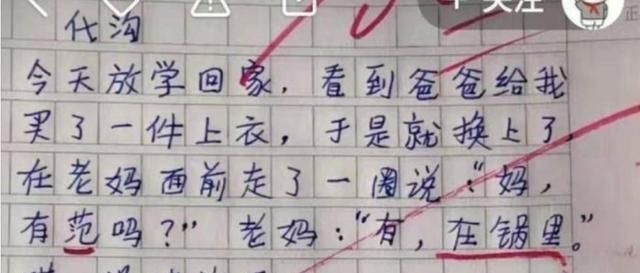 关注
正
代沟
今天放学回家，看到爸爸给我
买了一件上衣，于是就换上了，
在老妈面前走了一圈说：“妈，
有范吗？”老妈：“有，在锅里。”